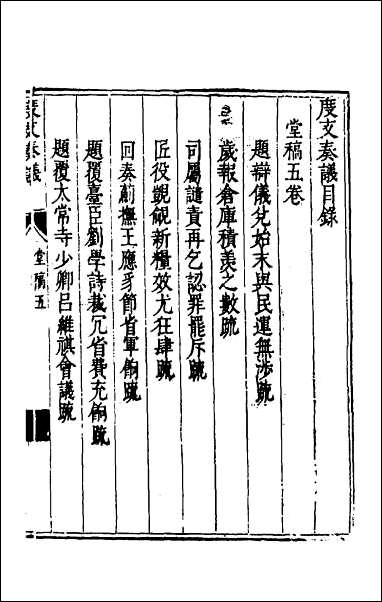 度支奏議目錄
堂稿五卷
題辯儀兊始末與民運無涉疏
歲報倉庫積羨之數疏
司屬譴責再乞認罪罷斥疏
匠役覬覦新糧效尤狂肆疏
回奏薊撫王應豸節省軍餉疏
題覆臺臣劉學詩裁冗省費充餉疏
題覆太常寺少卿呂維祺會議疏
度支奏議
堂稿五